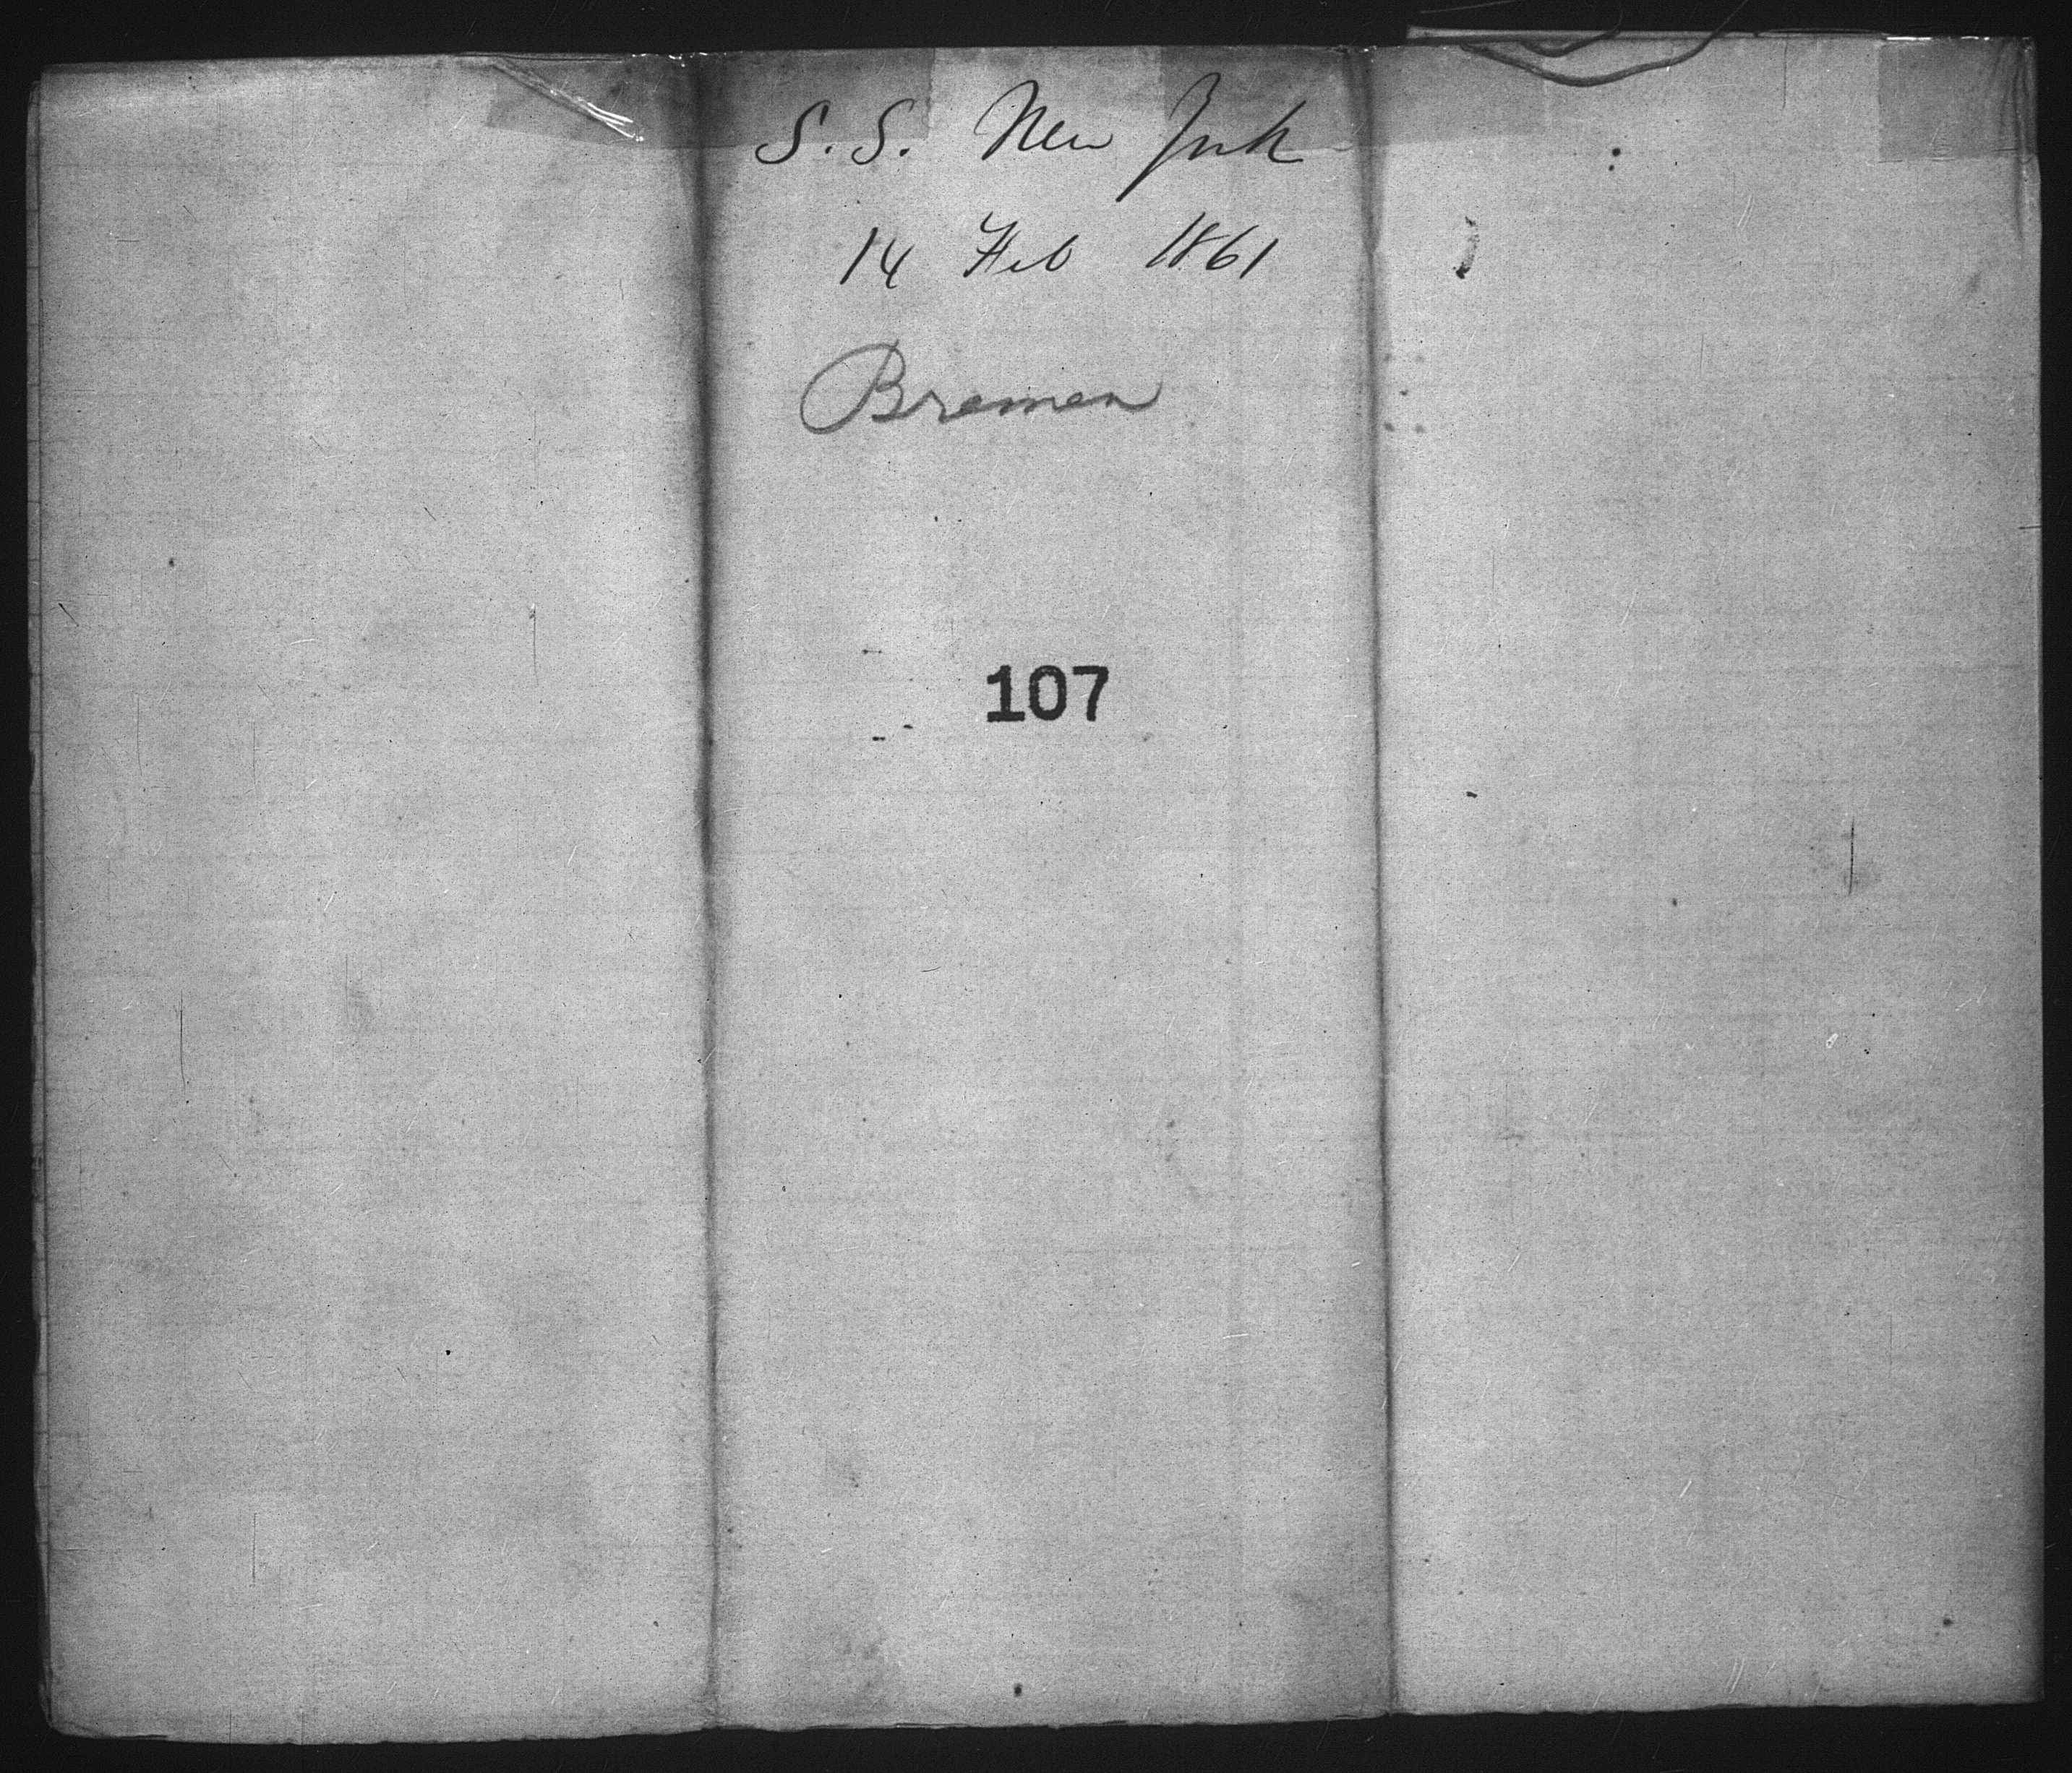 S.S. New York
14 Feb 1861
Bremen
107